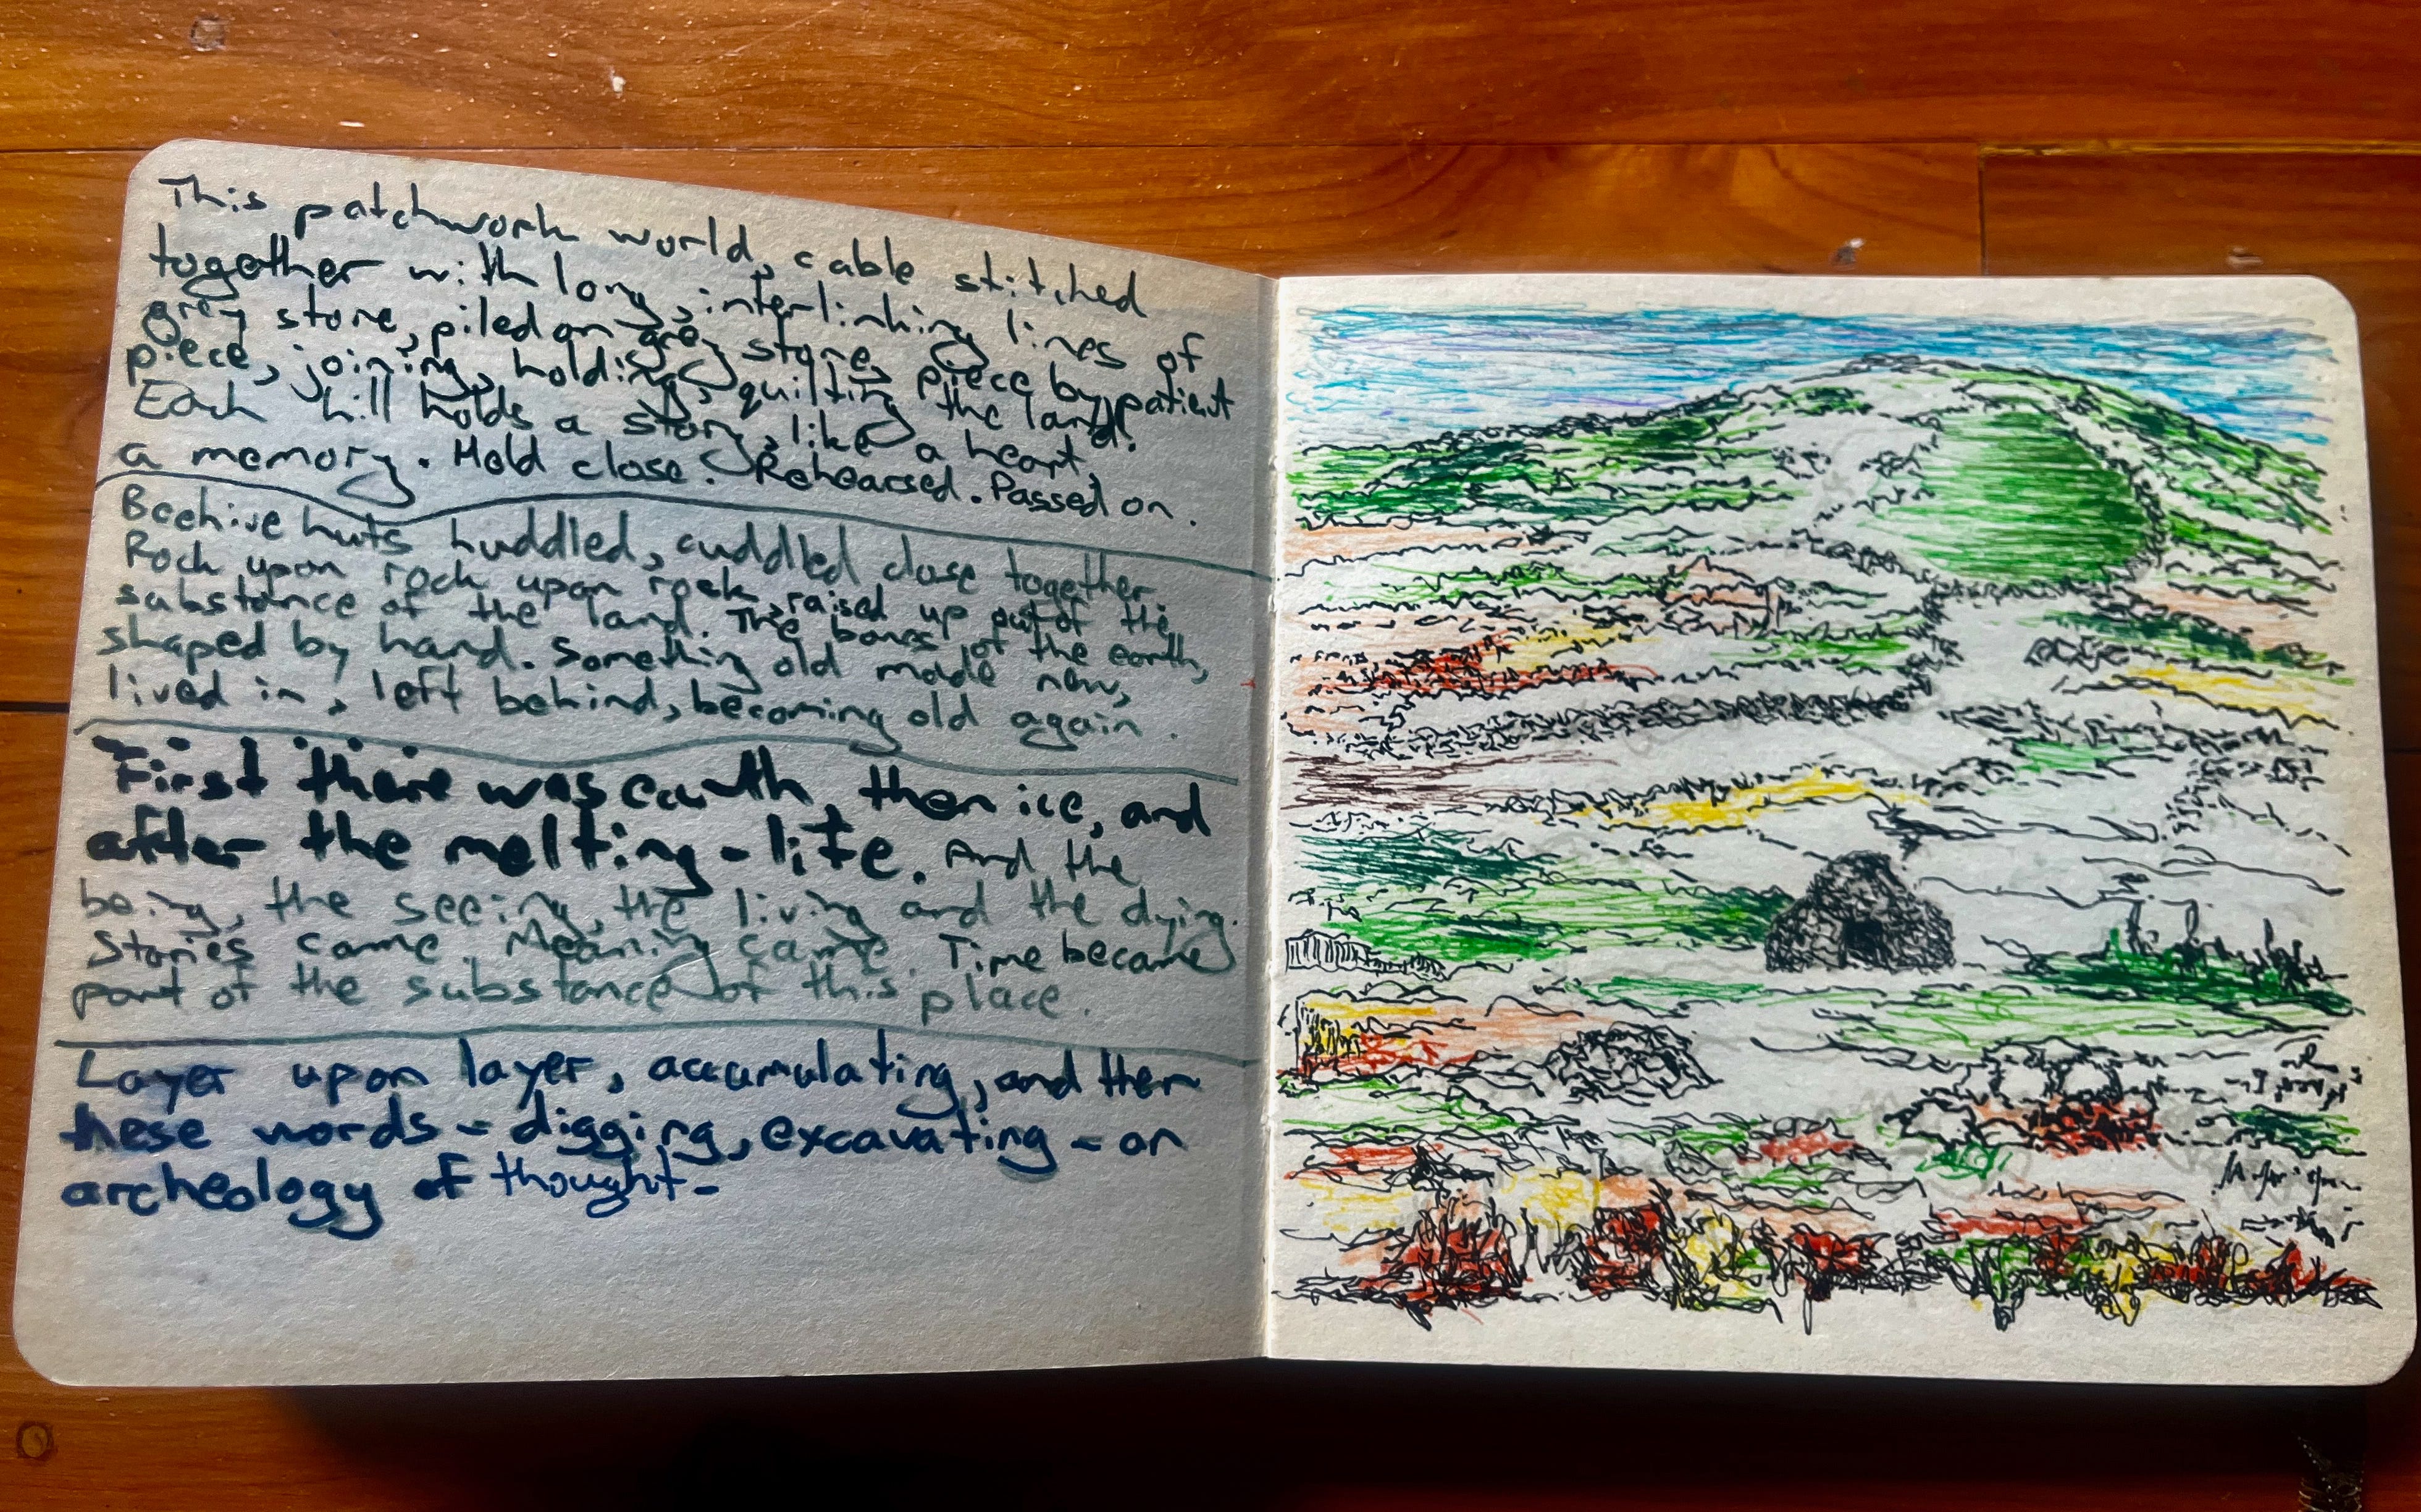 This patchwork world, cable stitched
together with long, interlinking lines of
grey stone, piled on grey stone, piece by patient
piece, joining, holding, quilting the land.
Each hill holds a story, like a heart,
a memory. Held close. Rehearsed. Passed on.
Beehive huts huddled, cuddled close together
Rock upon rock upon rock, raised up out of the
substance of the land. The bones of the earth,
shaped by hand. Something old made new,
lived in, left behind, becoming old again.
First there was earth, then ice, and
after the melting - life. And the
being, the seeing, the living and the dying.
Stories came. Meaning came. Time became
part of the substance of this place.
Layer upon layer, accumulating, and then
these words - digging, excavating - an
archeology of thought -